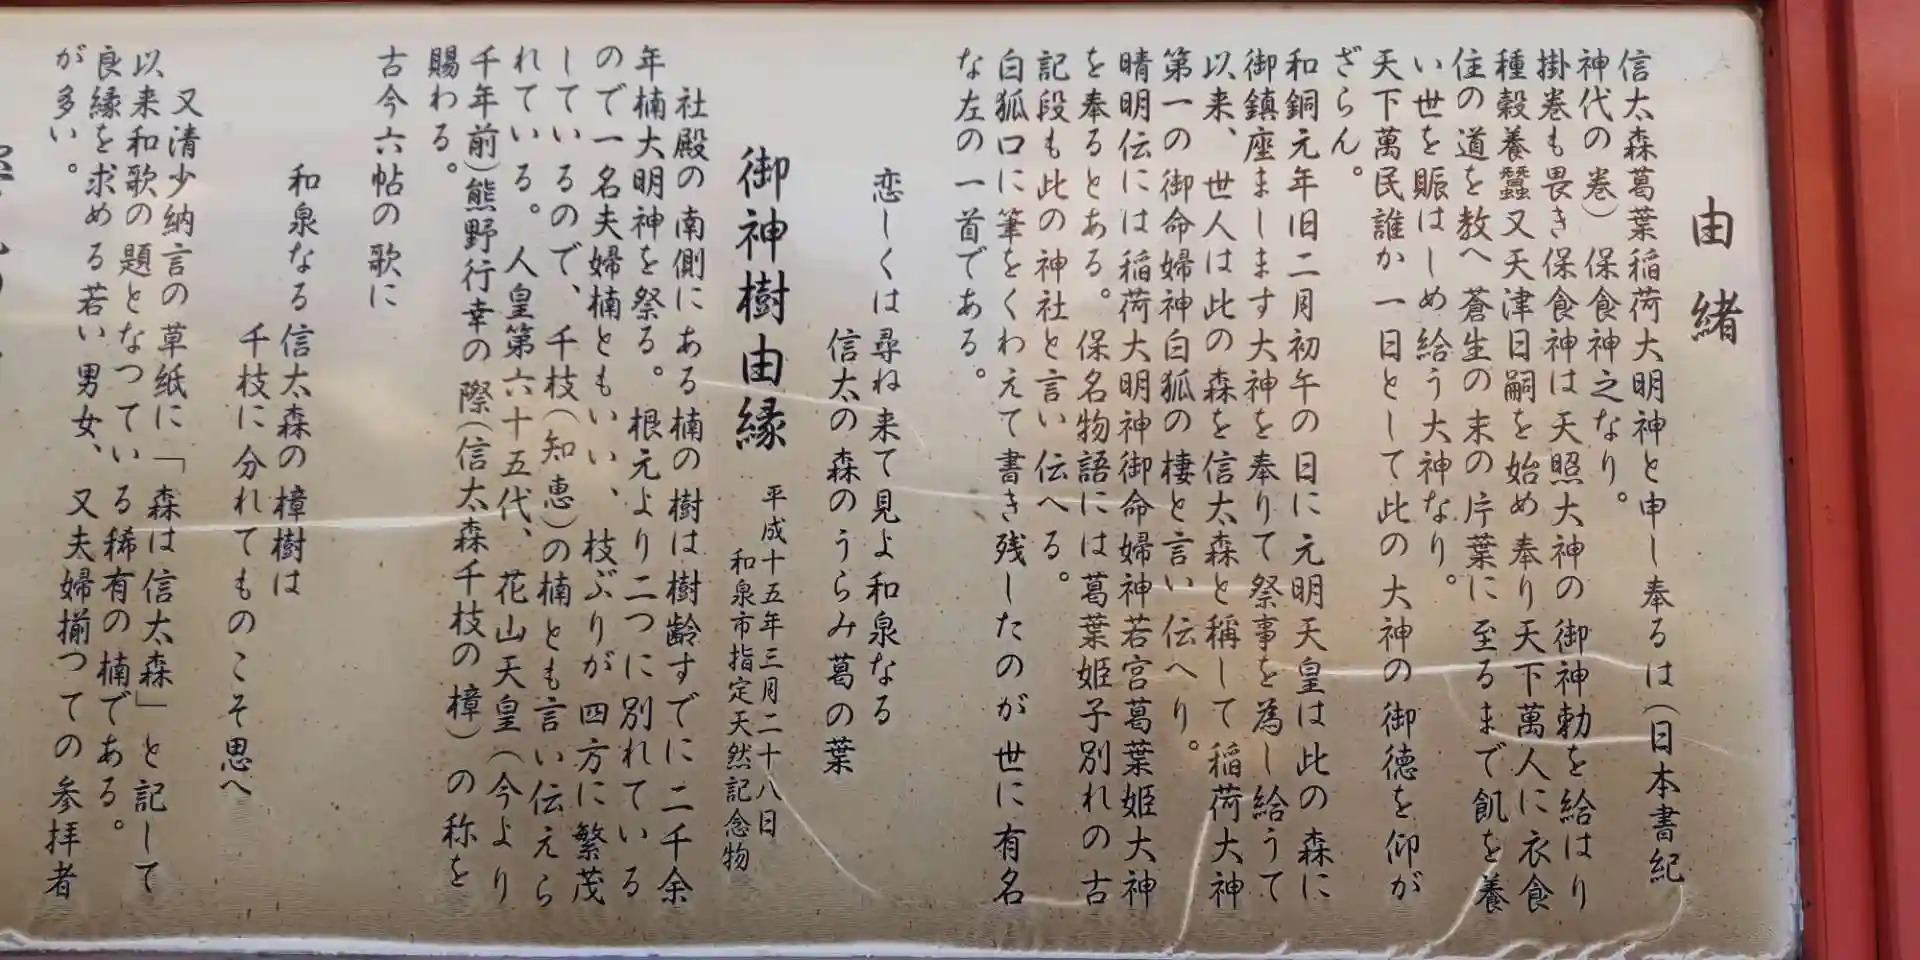 由緒
信太森葛葉稲荷大明神と申し奉るは(日本書紀
神代の巻)保食神之なり。
掛巻も畏き保食神は天照大神の御神勅を給はり
種穀養蠶又天津日嗣を始め奉り天下萬人に衣食
住の道を教へ蒼生の末の片葉に至るまで飢を養
い世を賑はしめ給う大神なり。
天下萬民誰か一日として此の大神の御徳を仰が
ざらん。
和銅元年旧二月初午の日に元明天皇は此の森に
御鎮座まします大神を奉りて祭事を為し給うて
以来、世人は此の森を信太森と稱して稲荷大神
第一の御命婦神白狐の棲と言い伝へり。
晴明伝には稲荷大明神御命婦神若宮葛葉姫大神
を奉るとある。保名物語には葛葉姫子別れの古
記段も此の神社と言い伝へる。
白狐口に筆をくわえて書き残したのが世に有名
な左の一首である。
恋しくは尋ね来て見よ和泉なる
信太の森のうらみ葛の葉
御神樹由縁
平成十五年三月二十八日
和泉市指定天然記念物
社殿の南側にある楠の樹は樹齢すでに二千余
年楠大明神を祭る。根元より二つに別れている
ので一名夫婦楠ともいい、枝ぶりが四方に繁茂
しているので、千枝(知恵)の楠とも言い伝えら
れている。人皇第六十五代、花山天皇(今より
千年前)熊野行幸の際(信太森千枝の樟)の称を
賜わる。
古今六帖の歌に
和泉なる信太森の樟樹は
千枝に分れてものこそ思へ
又清少納言の草紙に「森は信太森」と記して
以来和歌の題となつている稀有の楠である。
良縁を求める若い男女、又夫婦揃つての参拝者
が多い。